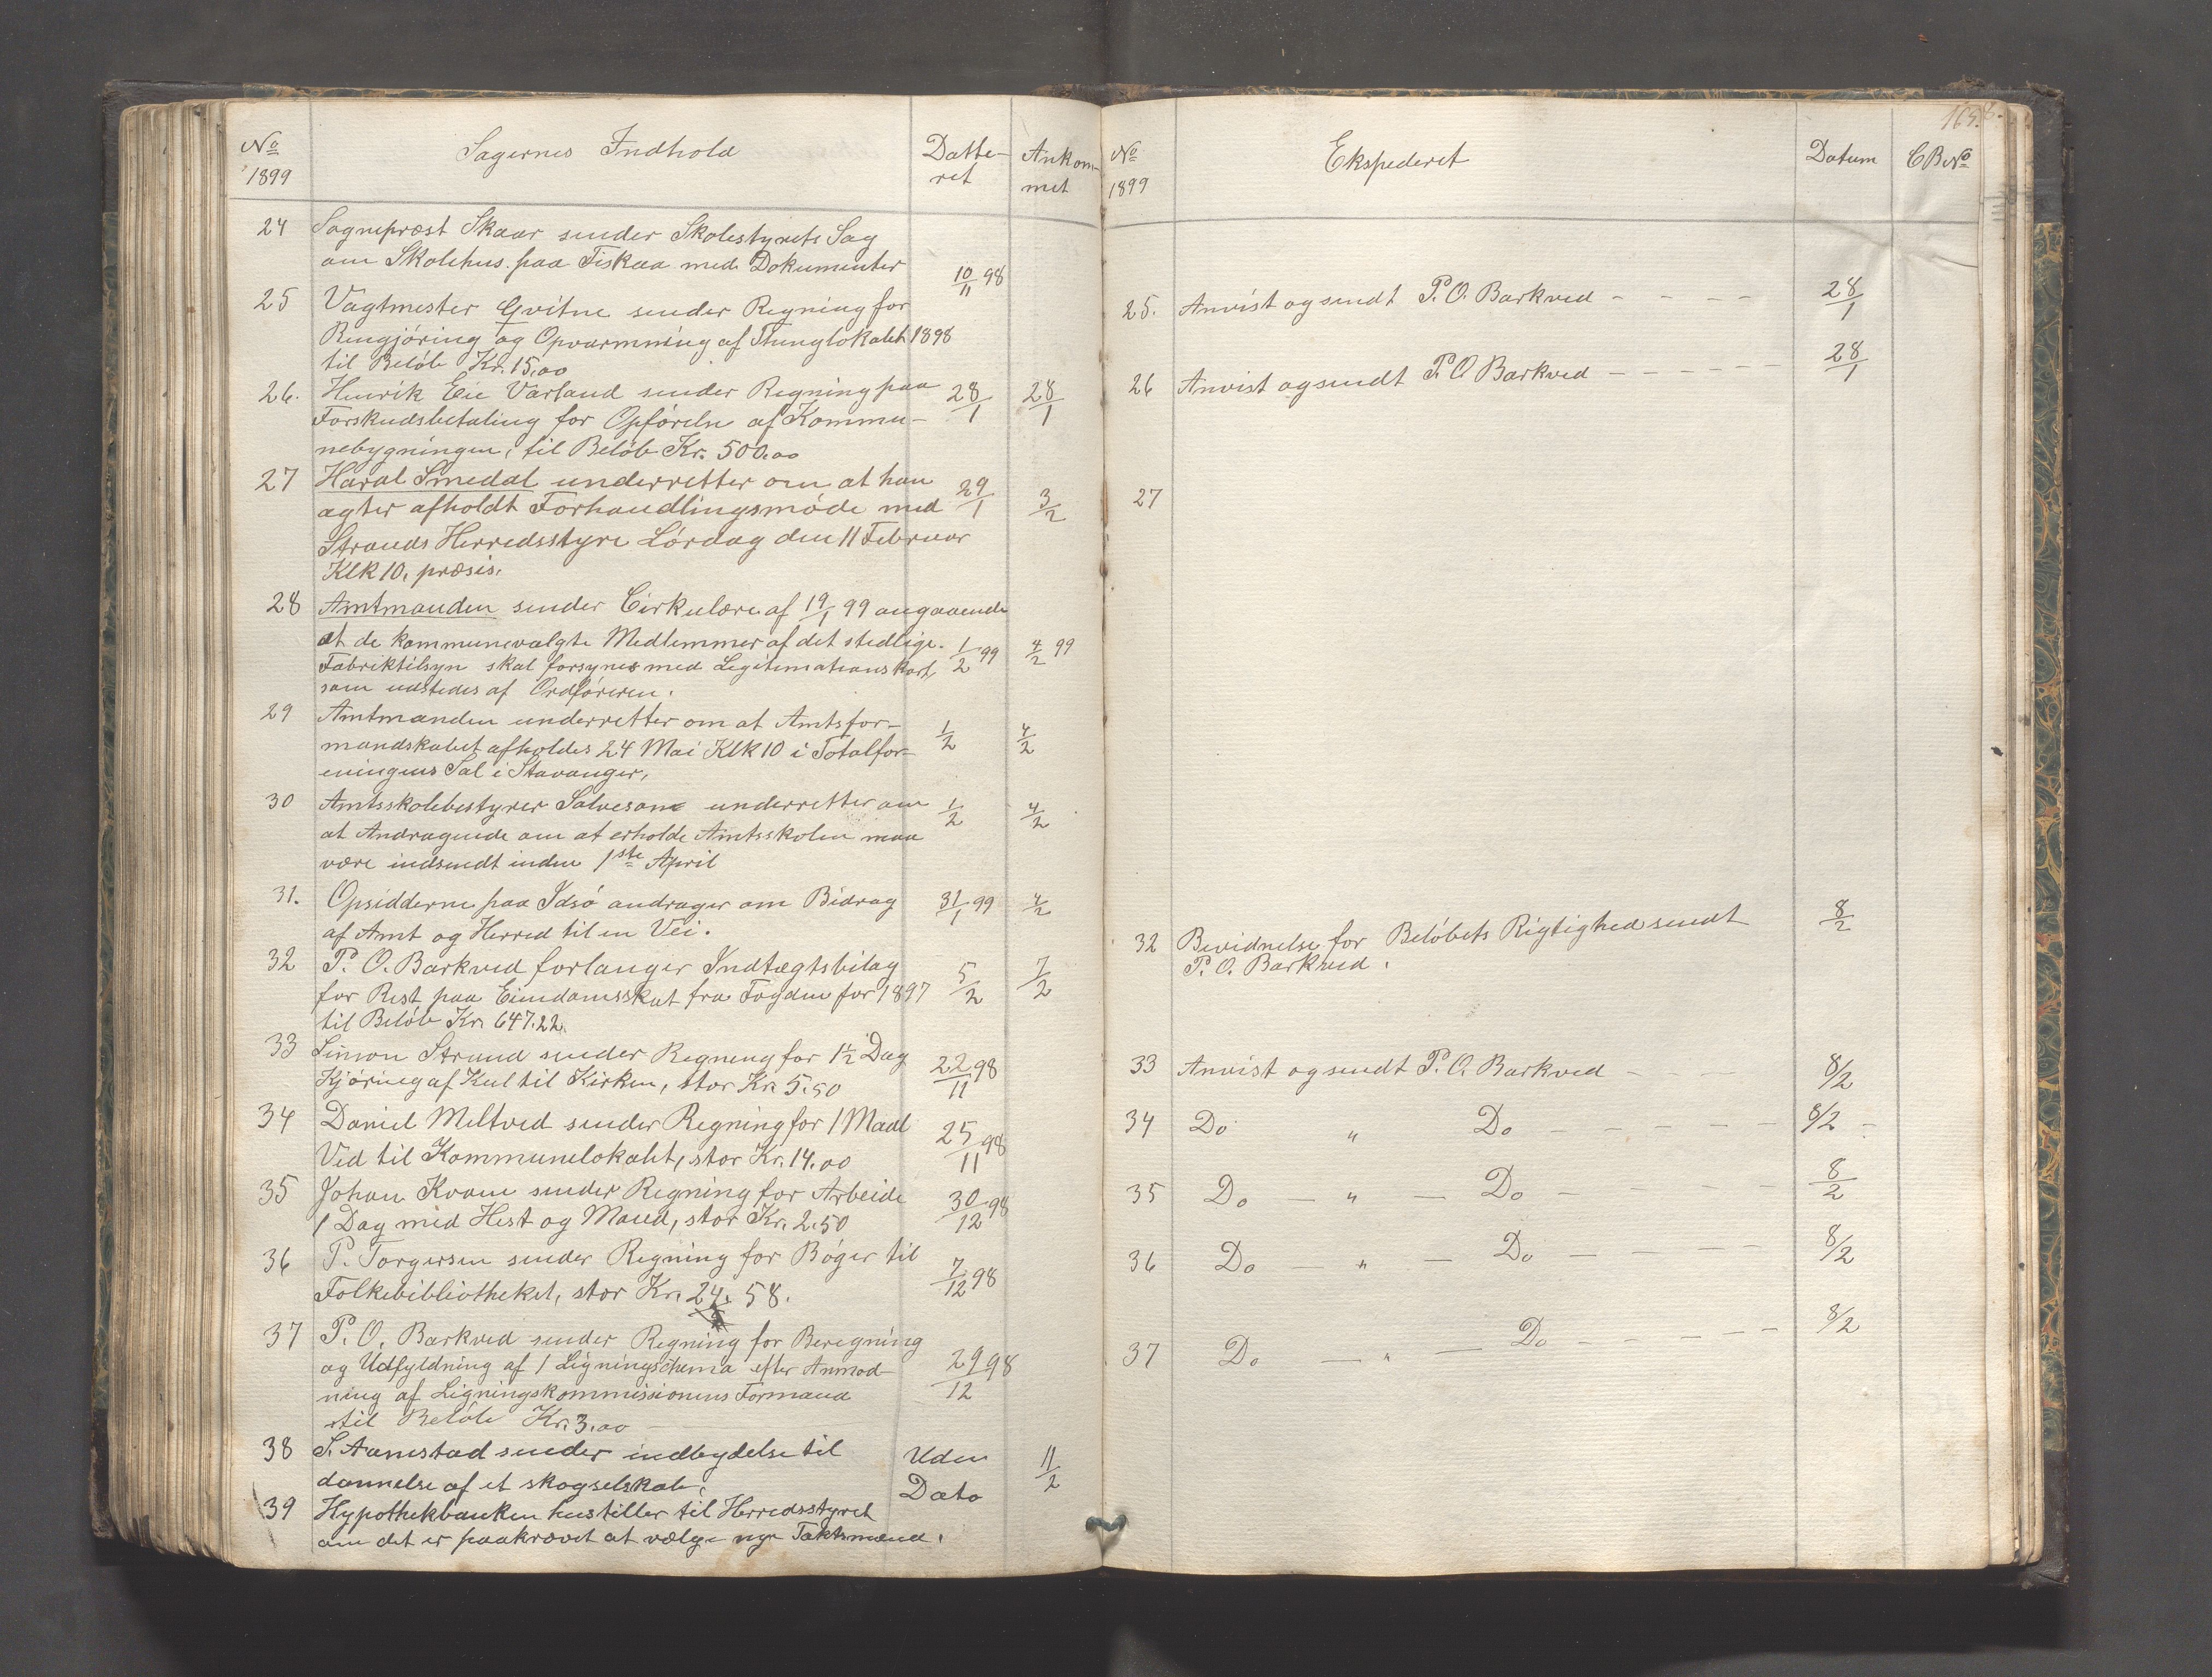 No 1899 Sagernes Indhold Datte-ret Ankom-met
24 Sognepræst Skaar sender Skolestyrets Sag
om Skolehus paa Fiskaa med Dokumenter 10/11 98
25 Vagtmester Qvitne sender Regning for
Rengjøring og Opvarmning af Thinglokalet 1898
til Beløb Kr. 15.00
26. Henrik Eie Varland sender Regning paa 28/1 28/1
Forskudsbetaling for Opførelse af Kommu-
nebygningen, til Beløb Kr. 500.00
27 Haral Smedal underretter om at han 29/1 3/2
agter afholdt Forhandlingsmøde med
Strands Herredsstyre Lørdag den 11 Februar
Klk 10, præsis.
28 Amtmanden sender Cirkulære af 19/1 99 angaaende
at de kommunevalgte Medlemmer af det stedlige 1/2 99 4/2 99
Fabriktilsyn skal forsynes med Legitimationskort,
som udstedes af Ordføreren.
29 Amtmanden underretter om at Amtsfor-
mandskabet afholdes 24 Mai Klk 10 i Totalfor- 1/2 4/2
eningens Sal i Stavanger,
30 Amtsskolebestyrer Salvesom underretter om 1/2 4/2
at Andragende om at erholde Amtsskolen maa
være indsendt inden 1ste April
31. Opsidderne paa Idsø andrager om Bidrag 31/1 99 4/2
af Amt og Herred til en Vei.
32 P. O. Barkved forlanger Indtægtsbilag
for Rest paa Eiendomsskat fra Fogden for 1897 5/2 7/2
til Beløb Kr. 647.22.
33 Simon Strand sender Regning for 1 1/2 Dag
Kjøring af Kul til Kirken, stor Kr. 5.50 22/11 98
34 Daniel Meltved sender Regning for 1 Maal
Ved til Kommunelokalet, stor Kr. 14.00 25/11 98
35 Johan Kvame sender Regning for Arbeide
1 Dag med Hest og Mand, stor Kr. 2.50 30/12 98
36 P. Torgersen sender Regning for Bøger til
Folkebibliotheket, stor Kr. 24. 58. 7/12 98
37 P. O. Barkved sender Regning for Beregning
og Udfyldning af 1 Ligningschema efter Anmod- 29/12 98
ning af Ligningskommissionens Formand
til Beløb Kr. 3.00
38 S. Aamestad sender indbydelse til Uden 11/2
dannelse af et skogselskab, Dato
39 Hypothekbanken henstiller til Herredsstyret
om det er paakrævet at vælge nye Takstmænd.
No 1899 Ekspederet Datum CB No
25. Anvist og sendt P. O. Barkved - - - - 28/1
26 Anvist og sendt P. O Barkved - - - - - - 28/1
27
32 Bevidnelse for Beløbets Rigtighed sendt 8/2
P. O. Barkved.
33 Anvist og sendt P. O. Barkved - - - - 8/2
34 Do " Do - - - - - - 8/2 -
35 Do - " - Do - - - - - 8/2
36 Do - " - Do - - - - - 8/2
37 Do - " - Do - - - - - 8/2